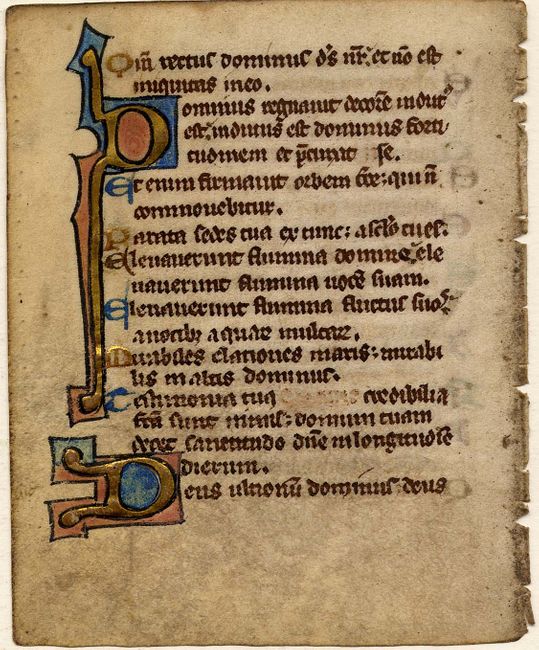 Qm̃ rectus dominus dꝰs nr̃: et nõ est
iniquitas in eo.
Dominus regnavit decorẽ indutꝰ
est: indutus est dominus forti
tudinem et p̃cinxit se.
Et enim firmavit orbem t̃re: qui ñ
commovebitur.
Parata sedes tua ex tunc: a sclo tu es.
Elevaverunt flumina domine: ele
vaverunt flumina vocẽ suam.
Elevaverunt flumina fluctus suoꝝ
a vocibꝫ aquaꝝ multaꝝ.
Mirabiles elationes maris: mirabi
lis in altis dominus.
Testimonia tua credibilia
fcã sunt nimis: domum tuam
decet sanctitudo dñe in longitudĩe
dierum.
Deus ultionũ dominus: deus